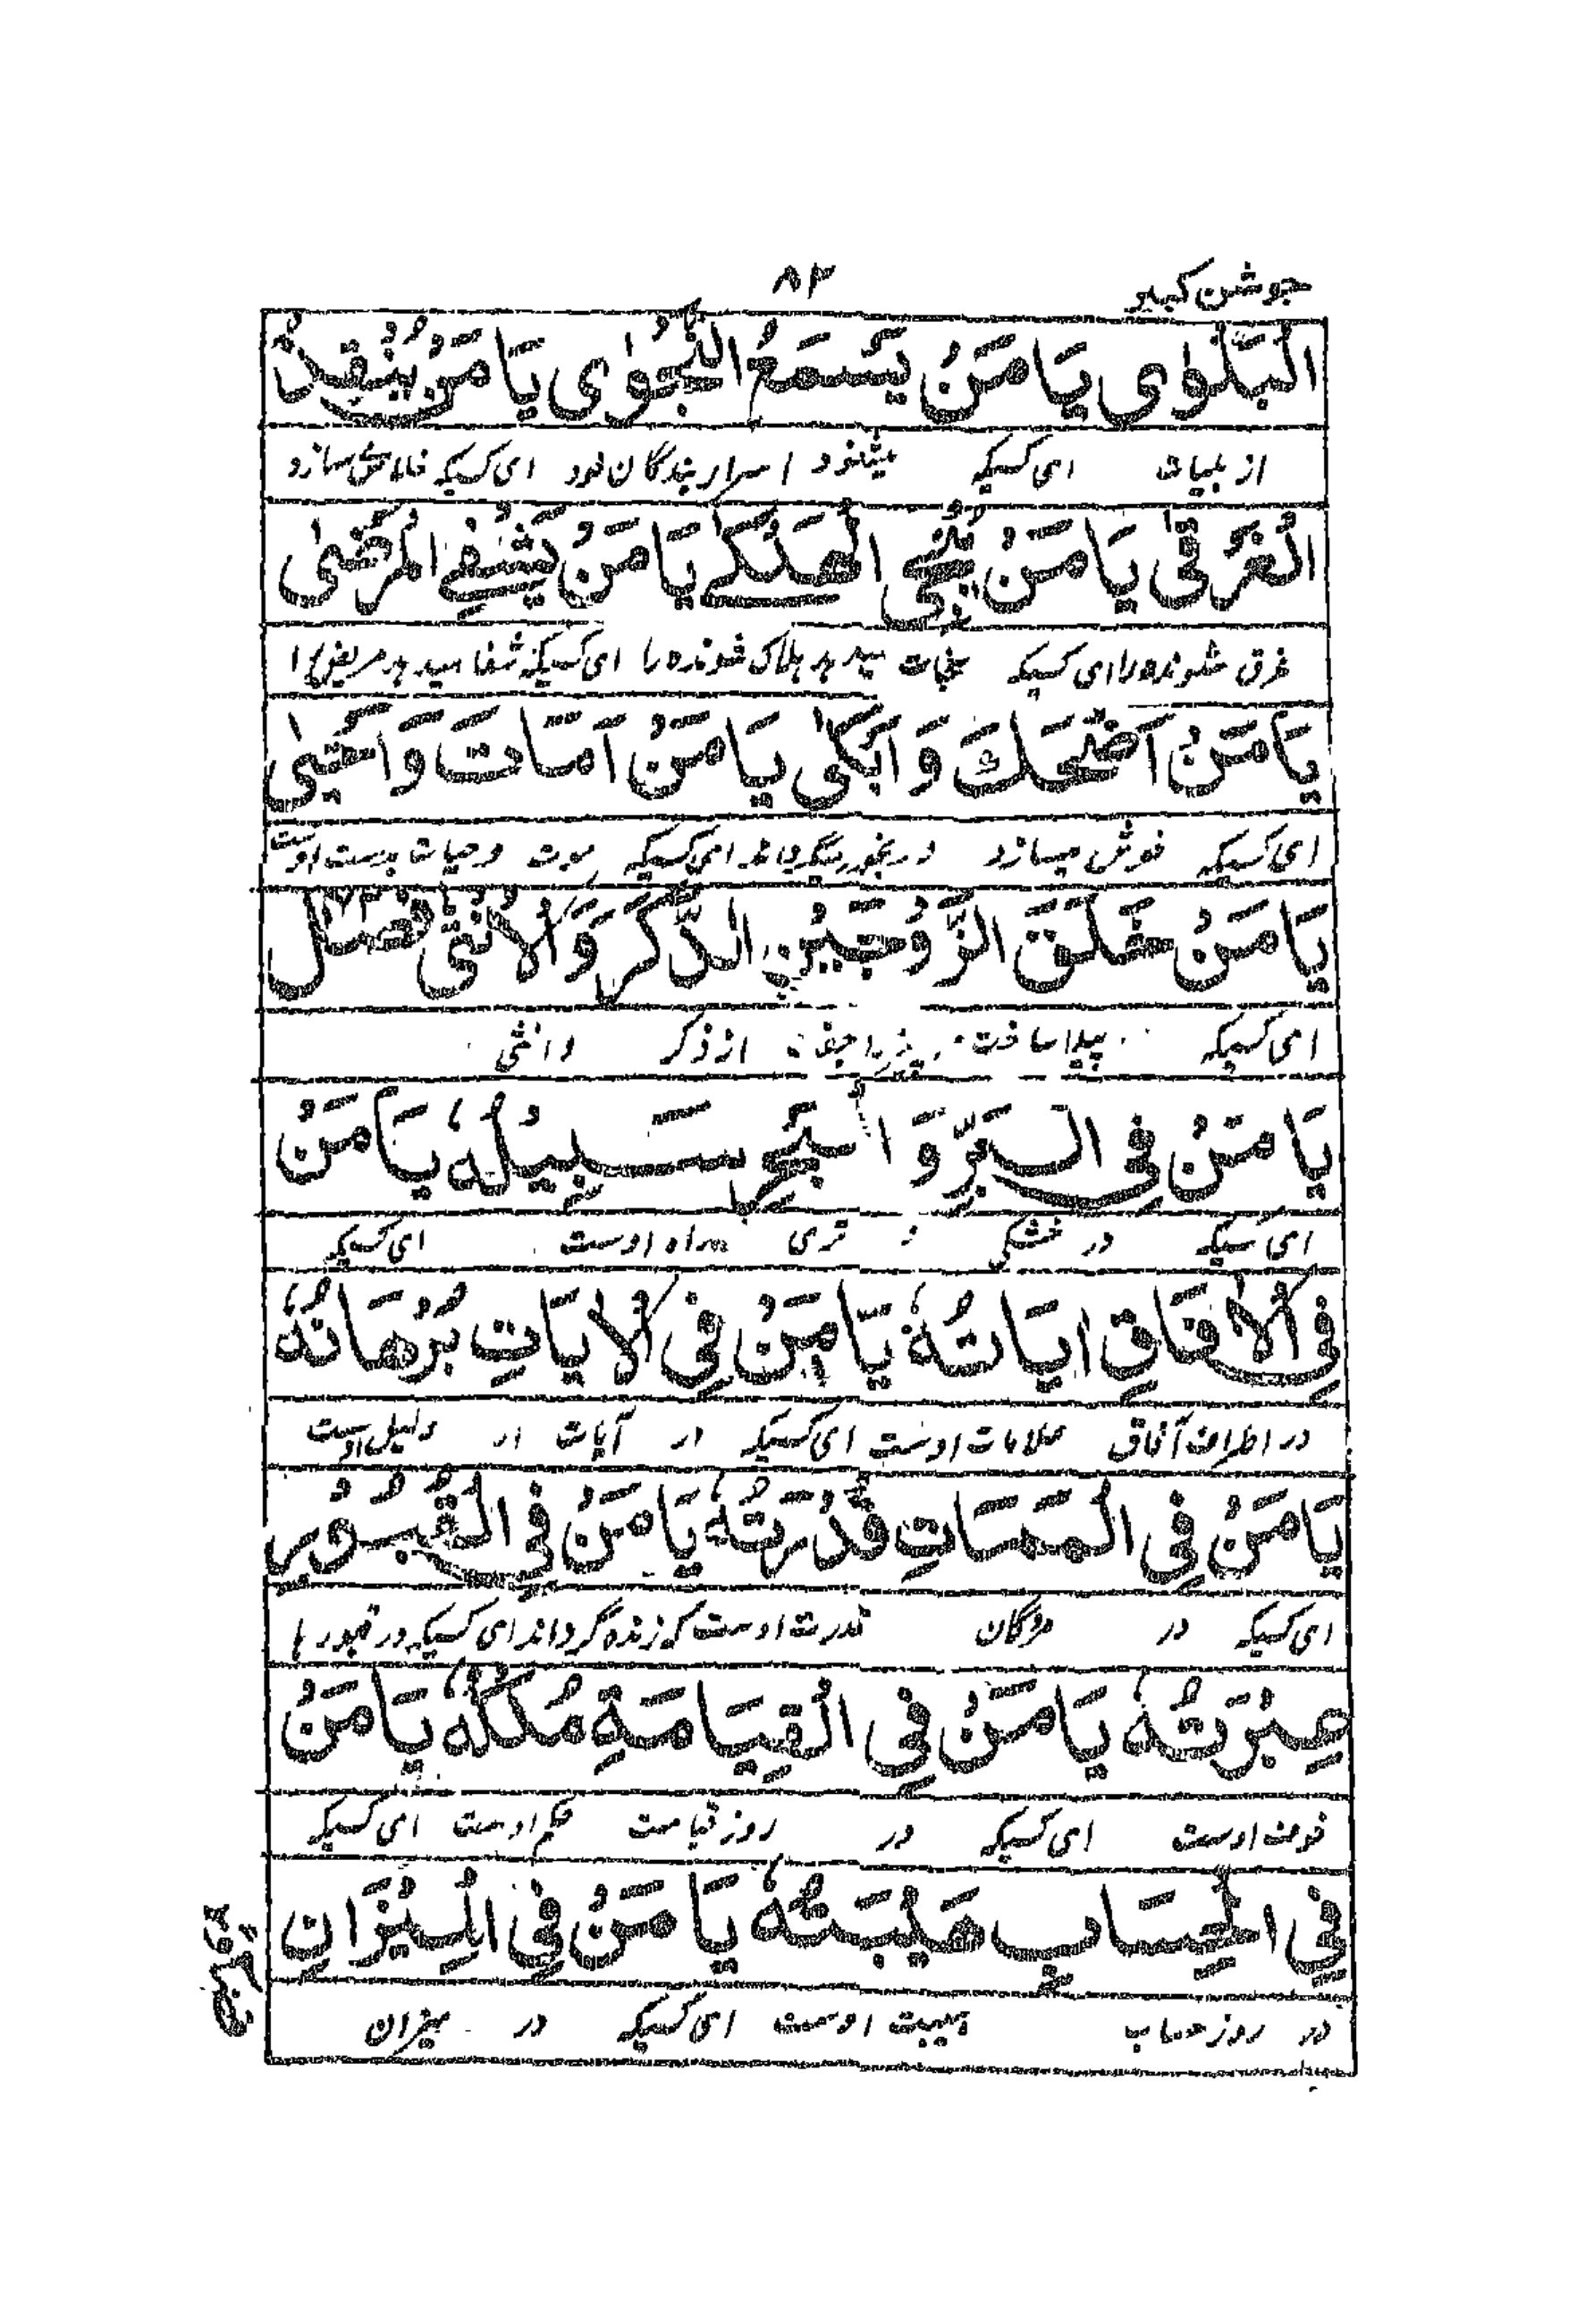 جوشن کبیر ۸۴
الْبَلْوٰى يَا مَنْ يَسْمَعُ النَّجْوٰى يَا مَنْ يُنْقِذُ
از بلیات ای کسیکه میشنود اسرار بندگان خود ای کسیکه خلاص میسازد
الْغَرْقٰى يَا مَنْ يُنْجِى الْهَلْكٰے يَا مَنْ يَشْفِے الْمَرْضٰى
غرق شونده را ای کسیکه نجات میدهد هلاک شونده را ای کسیکه شفا میدهد مریض را
يَا مَنْ اَضْحَكَ وَ اَبْكٰى يَا مَنْ اَمَاتَ وَ اَحْيٰى
ای کسیکه خوش میسازد و رنجور میگرداند ای کسیکه موت و حیات بدست اوست
يَا مَنْ خَلَقَ الزَّوْجَيْنِ الذَّكَرَ وَ الْاُنْثٰى فصل
ای کسیکه پیدا ساخت از ذکر و انثی
يَا مَنْ فِى الْبَرِّ وَ الْبَحْرِ سَبِيْلُهٗ يَا مَنْ
ای کسیکه در خشکی و تری راه اوست ای کسیکه
فِى الْاٰفَاقِ اٰيَاتُهٗ يَا مَنْ فِى الْاٰيَاتِ بُرْهَانُهٗ
در اطراف آفاق علامات اوست ای کسیکه در آیات او دلیل اوست
يَا مَنْ فِى الْمَمَاتِ قُدْرَتُهٗ يَا مَنْ فِى الْقُبُوْرِ
ای کسیکه در مردگان قدرت اوست که زنده گرداند ای کسیکه در قبور ها
عِبْرَتُهٗ يَا مَنْ فِى الْقِيَامَةِ مُلْكُهٗ يَا مَنْ
خوف اوست ای کسیکه در روز قیامت حکم اوست ای کسیکه
فِى الْحِسَابِ هَيْبَتُهٗ يَا مَنْ فِى الْمِيْزَانِ
در روز حساب هیبت اوست ای کسیکه در میزان